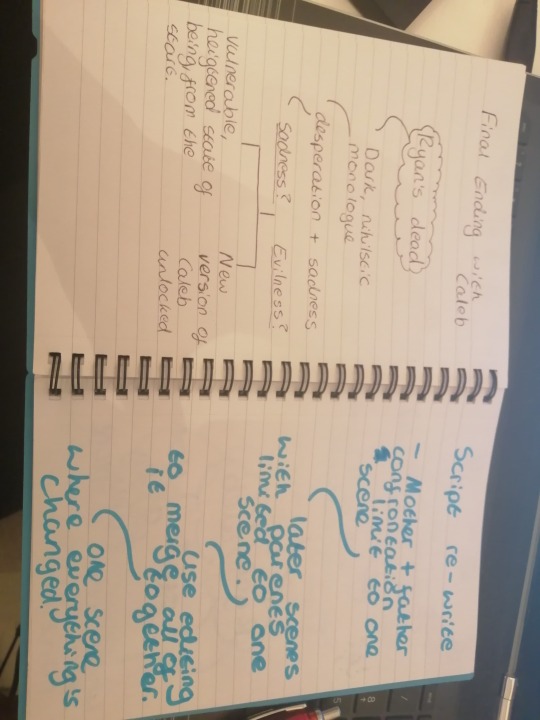 Final Ending with
Caleb
Ryan's dead
Dark, nihilistic
monologue
desperation + sadness
sadness? Evilness?
Vulnerable,
heigtened state of
being from the
start.
New
version of
Caleb
unlocked
Script re-write
- Mother + father
confrontation
limit to one
scene
later scenes
with parents
limited to one
scene.
use editing
to merge all of
it together.
one scene
where everything's
changed.